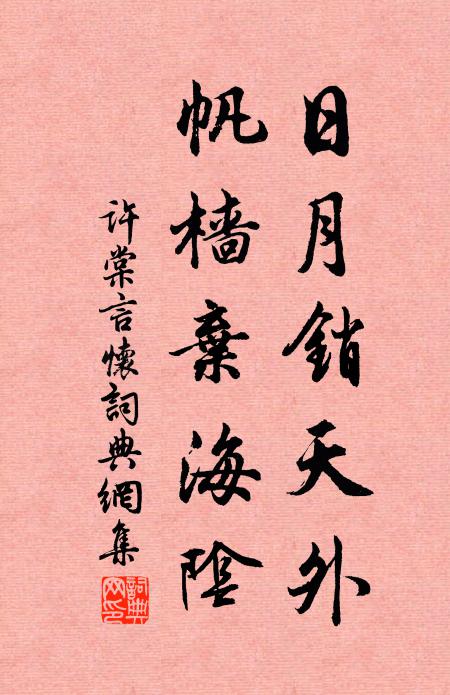 日月銷天外
帆檣棄海陰
許棠言懷詞典網集
詞典網印